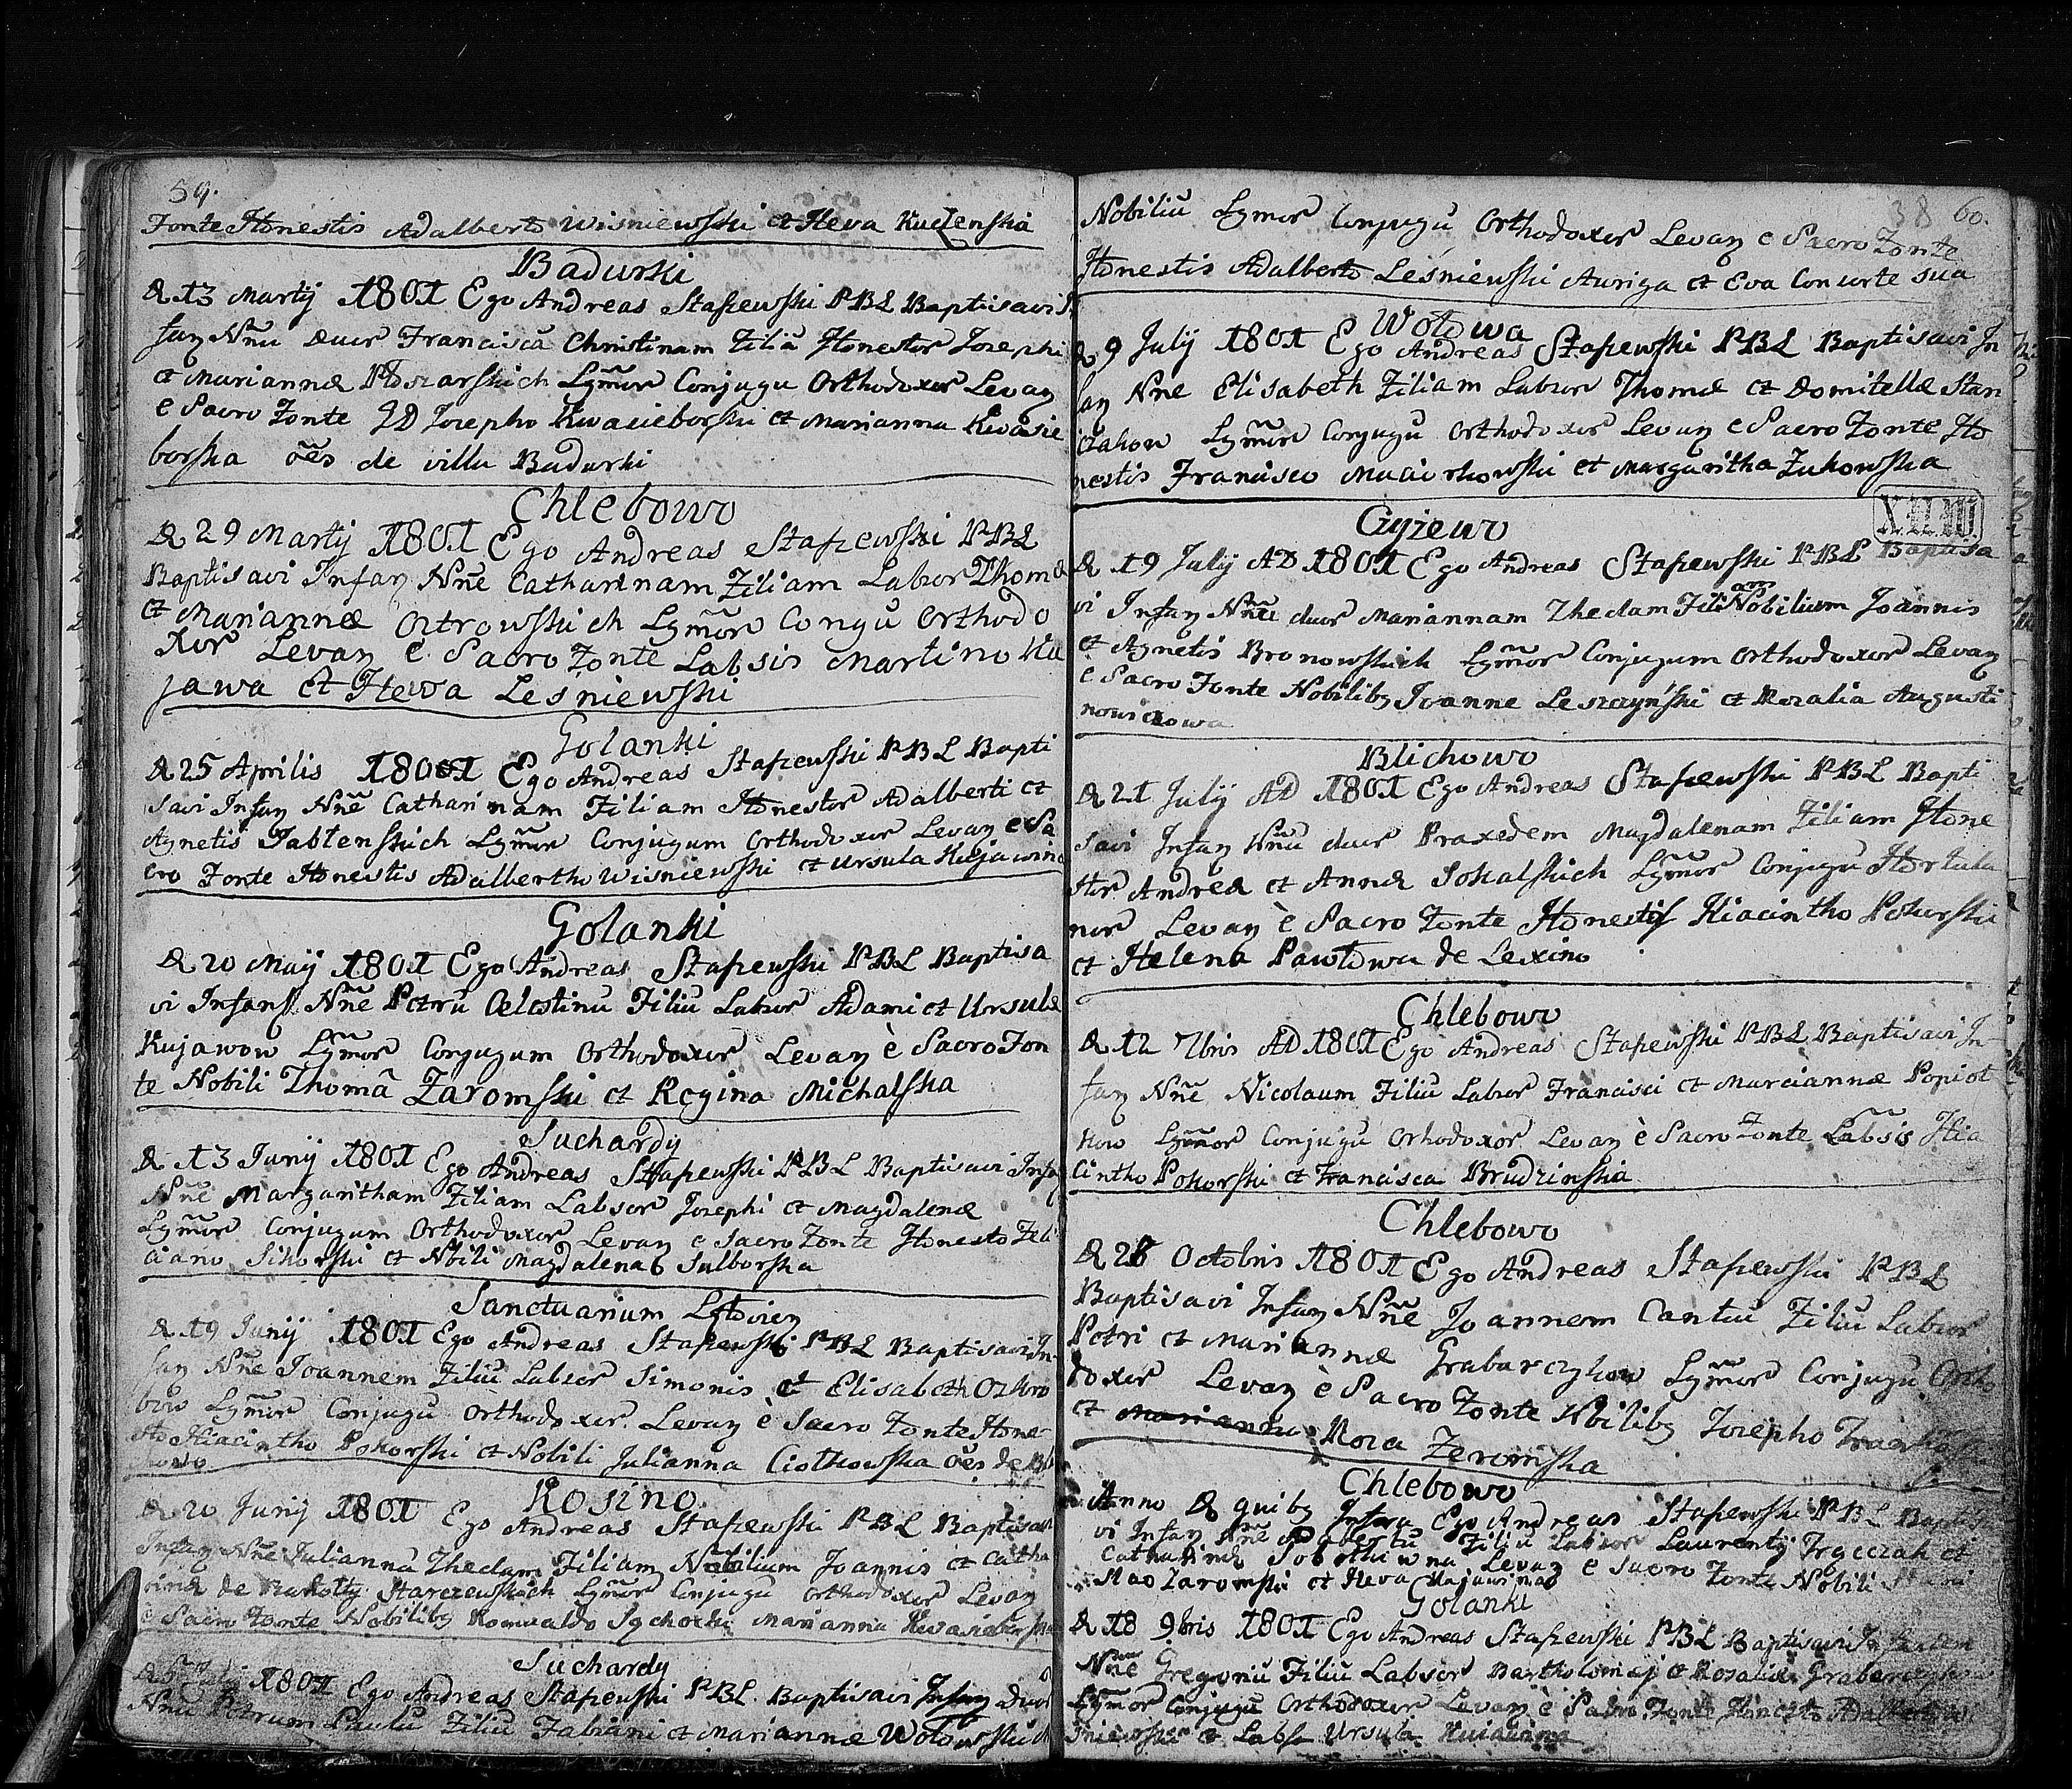 59.
Fonte Honestis Adalberto Wisniewski et Heva Kuczenska
Badurki
D 13 Martij 1801 Ego Andreas Stasiewski PBL Baptisavi
fan Nnu duor Franciscã Christinam Filiã Honestor Josephi
et Mariannæ Ploszarskich Lgmor Conjugu Orthodoxor Levan
e Sacro Fonte GD Josepho Kwasieborski et Marianna Kwasie
borska oes de villa Badurki
Chlebowo
D 29 Martij 1801 Ego Andreas Stasiewski PBL
Baptisavi Infan Nne Catharinam Filiam Labor Thomæ
et Mariannæ Ostrowskich Lgmor Congu Orthodo
xor Levan e Sacro Fonte Labsis Martino Ku
jawa et Heva Lesniewski
Golanki
D 25 Aprilis 1801 Ego Andreas Stasiewski PBL Bapti
savi Infan Nne Catharinam Filiam Honestor Adalberti et
Agnetis Jablenskich Lgmor Conjugum Orthodoxor Levan e Sa
cro Fonte Honestis Adalbertho Wisniewski et Ursula Kujawina
Golanki
D 20 Maij 1801 Ego Andreas Stasiewski PBL Baptisa
vi Infans Nne Petru Celestinu Filiu Labor Adami et Ursulæ
Kujawow Lgmor Conjugum Orthodoxor Levan è Sacro Fon
te Nobili Thomã Zaromski et Regina Michalska
Suchardy
D 13 Junij 1801 Ego Andreas Stasiewski PBL Baptisavi Infan
Nne Margaritham Filiam Labsor Josephi et Magdalenæ
Lgmor Conjugum Orthodoxor Levan e Sacro Fonte Honesto Feli
ciano Sikorski et Nbili Magdalena Sulborska
Sanctuarium
D 19 Junij 1801 Ego Andreas Stasiewski PBL Baptisavi In-
fan Nne Joannem Filiu Labsor Simonis et Elisabeth
Lgmor Conjugu Orthodoxor Levan è Sacro Fonte Hone-
sto Hiacintho Pokorski et Nobili Julianna Ciolkowska oes de Bli
chowo
Rosino
D 20 Junij 1801 Ego Andreas Stasiewski PBL Baptisavi
Infan Nne Juliannã Theclam Filiam Nobilium Joannis et Catha
rinæ de Starczewskich Lgmor Conjugu Orthodoxor Levan
è Sacro Fonte Nobilibq Romualdo Sychocki Marianna Kwasieborska
Suchardy
1801 Ego Andreas Stasiewski PBL Baptisavi Infan Duor
Nnu Petrum Paulu Filiu Fabiani et Mariannæ Wolowskich
38 60.
Nobiliu Lgmor Conjugu Orthodoxor Levan e Sacro Fonte
Honestis Adalberto Lesniewski Auriga et Eva Consorte sua
Wolowa
D 9 July 1801 Ego Andreas Stasiewski PBL Baptisavi In
fan Nne Elisabeth Filiam Labsor Thomæ et Domitellæ Stan
czakow Lgmor Conjugu Orthodoxor Levan e Sacro Fonte Ho
nestis Francisco Maciorkowski et Margaritha Zukowska
Gyzewo
D 19 July AD 1801 Ego Andreas Stasiewski PBL Baptisa
vi Infan Nne duor Mariannam Theclam Filiam Nobilium Joannis
et Agnetis Bronowskich Lgmor Conjugum Orthodoxor Levan
e Sacro Fonte Nobilibq Joanne Leszczyński et Rozalia Augusti
nowiczowa
Blichowo
D 21 July AD 1801 Ego Andreas Stasiewski PBL Bapti
savi Infan Nnu duor Praxedem Magdalenam Filiam Hone
stor Andreæ et Annæ Sokalskich Lgmor Conjugu Hortula
nor Levan è Sacro Fonte Honestis Hiacintho Pokorski
et Helena Pawlowa de Lexino
Chlebowo
D 12 7bris AD 1801 Ego Andreas Stasiewski PBL Baptisavi In-
fan Nne Nicolaum Filiu Labsor Francisci et Marciannæ Popiol
kow Lgmor Conjugu Orhodoxor Levan è Sacro Fonte Labsis Hia
cintho Pokorski et Francisca Brudzinska
Chlebowo
D 28 Octobris 1801 Ego Andreas Stasiewski PBL
Baptisavi Infan Nne Joannem Cantiu Filiu Labsor
Petri et Mariannæ Grabarczykow Lgmor Conjugu Ortho
doxor Levan è Sacro Fonte Nbilibq Josepho
et Marianna Roza Zeromska
Chlebowo
Anno D quibq Infra Ego Andreas Stasiewski PBL Baptisa
vi Infan Nne Filiu Labsor Laurentij et
Catharinæ Levan e Sacro Fonte Nobili Stani
slao Zaromski et Heva Kujawina
Golanki
D 18 9bris 1801 Ego Andreas Stasiewski PBL Baptisavi Infantem
Nne Gregoriu Filiu Labsor Bartholomej et Rozaliæ Grabarczykow
Lgmor Conjugu Orthodoxor Levan è Sacro Fonte Honesto Adalberto Wi
sniewski et Labs Ursula Kuiawina